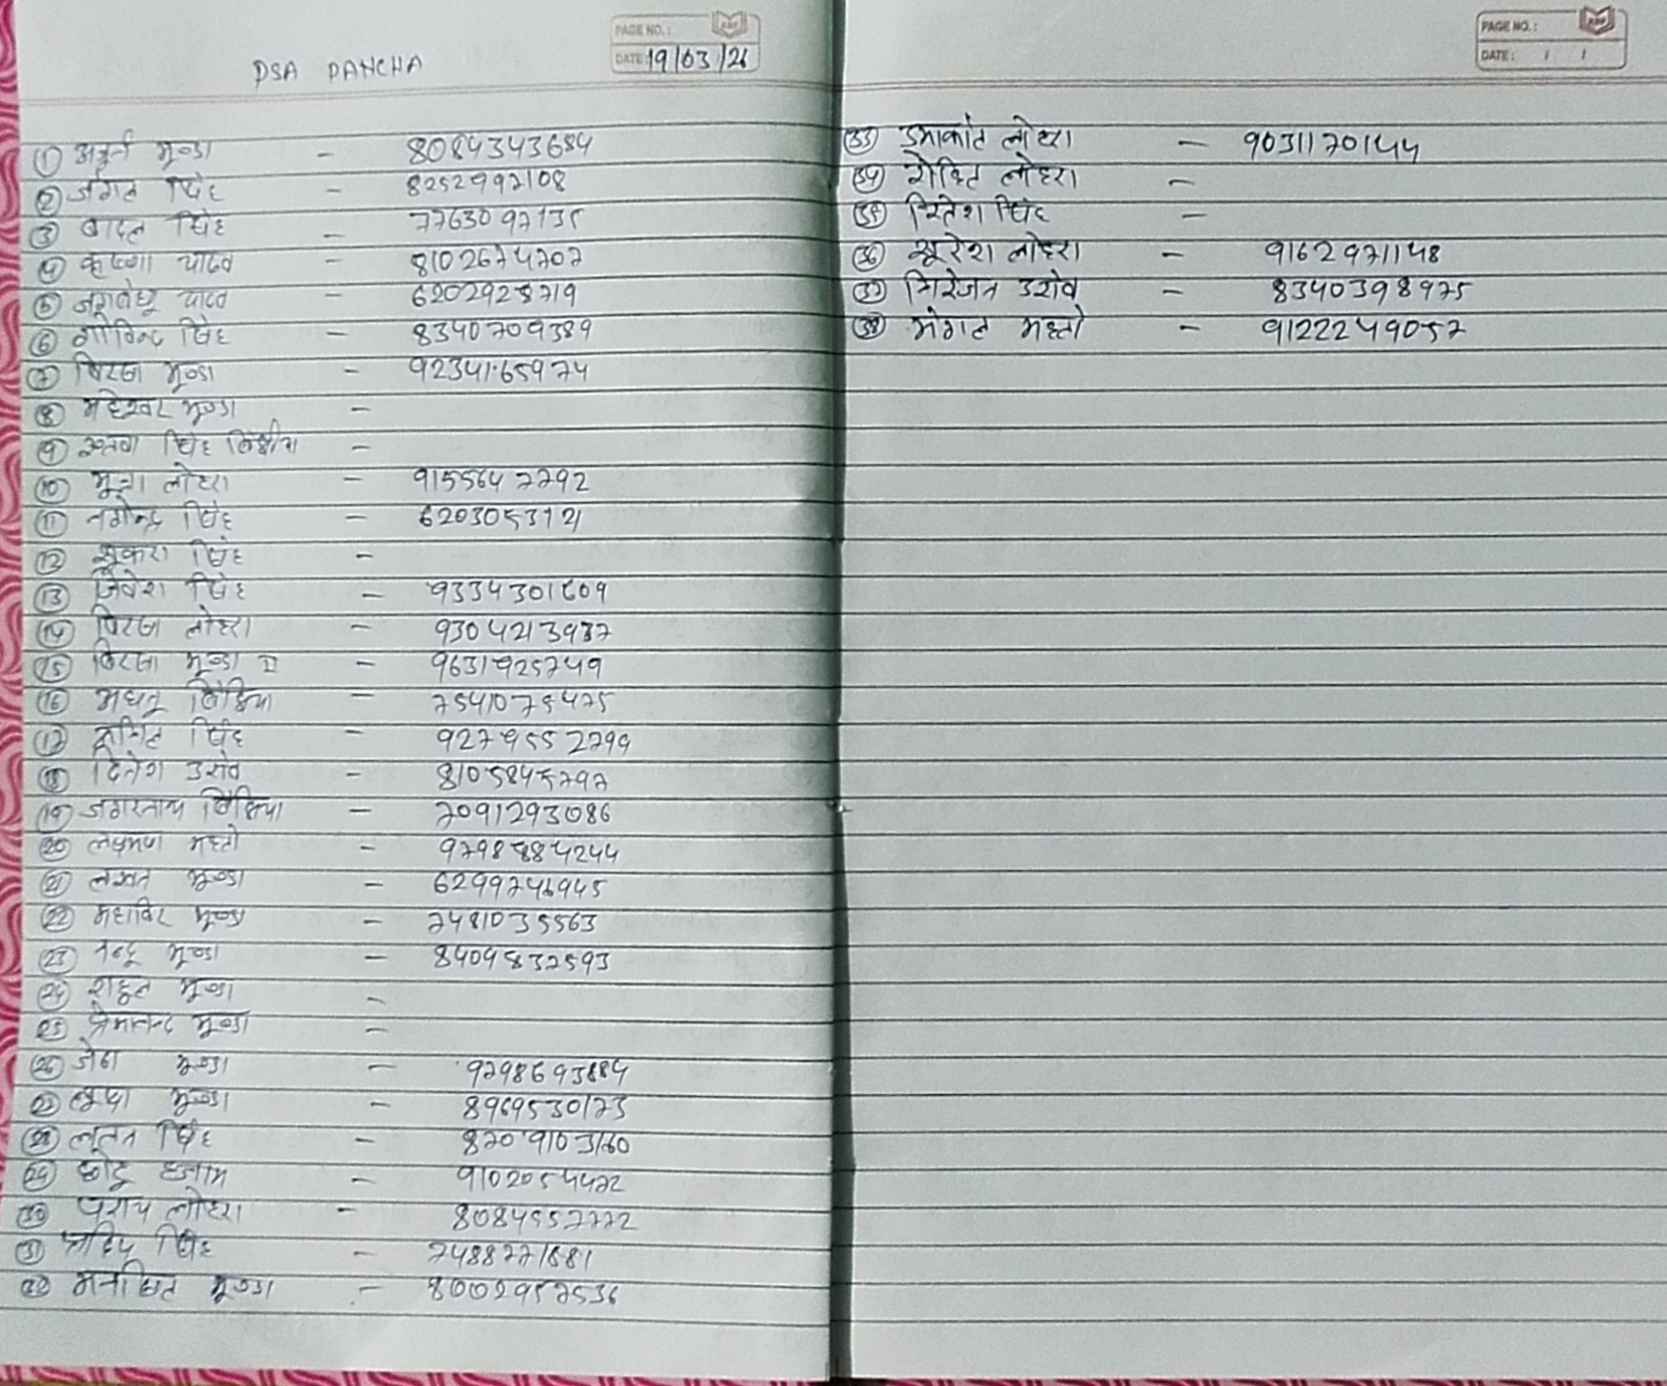 PAGE NO.:
DATE: 19/03/26
DSA PANCHA
① अर्जुन मुण्डा - 8084343684
② जगत सिंह - 8252997108
③ बादल सिंह - 7763097135
④ कृष्णा यादव - 8102674707
⑤ जगबंधु यादव - 6202928719
⑥ गोविन्द सिंह - 8340709389
⑦ बिरसा मुण्डा - 9234165974
⑧ महेश्वर मुण्डा -
⑨ सिंह -
⑩ मुन्ना लोहरा - 9155647792
⑪ नगेन्द्र सिंह - 6203053121
⑫ शुकरा सिंह -
⑬ जिवेश सिंह - 9334301609
⑭ बिरसा लोहरा - 9304213937
⑮ बिरसा मुण्डा II - 9631925749
⑯ - 7541075475
⑰ सिंह - 9279552799
⑱ दिनेश उराँव - 8105845797
⑲ जगरनाथ - 7091293086
⑳ लक्ष्मण महतो - 9798884244
㉑ लखन मुण्डा - 6299746945
㉒ महाविर मुण्डा - 7481035563
㉓ नन्दू मुण्डा - 8409832593
㉔ राहुल मुण्डा -
㉕ प्रेमानन्द मुण्डा -
㉖ जेठा मुण्डा - 9798693684
㉗ मुण्डा - 8969530173
㉘ लूतन सिंह - 8709103160
㉙ छोटू हजाम - 9102054472
㉚ लोहरा - 8084557772
㉛ सिंह - 7488771681
㉜ मुण्डा - 8002957536
PAGE NO.:
DATE: / /
㉝ उमाकांत लोहरा - 9031170144
㉞ रोहित लोहरा -
㉟ रितेश सिंह -
㊱ सुरेश लोहरा - 9162971148
㊲ निरंजन उराँव - 8340398975
㊳ मंगल महतो - 9122249057